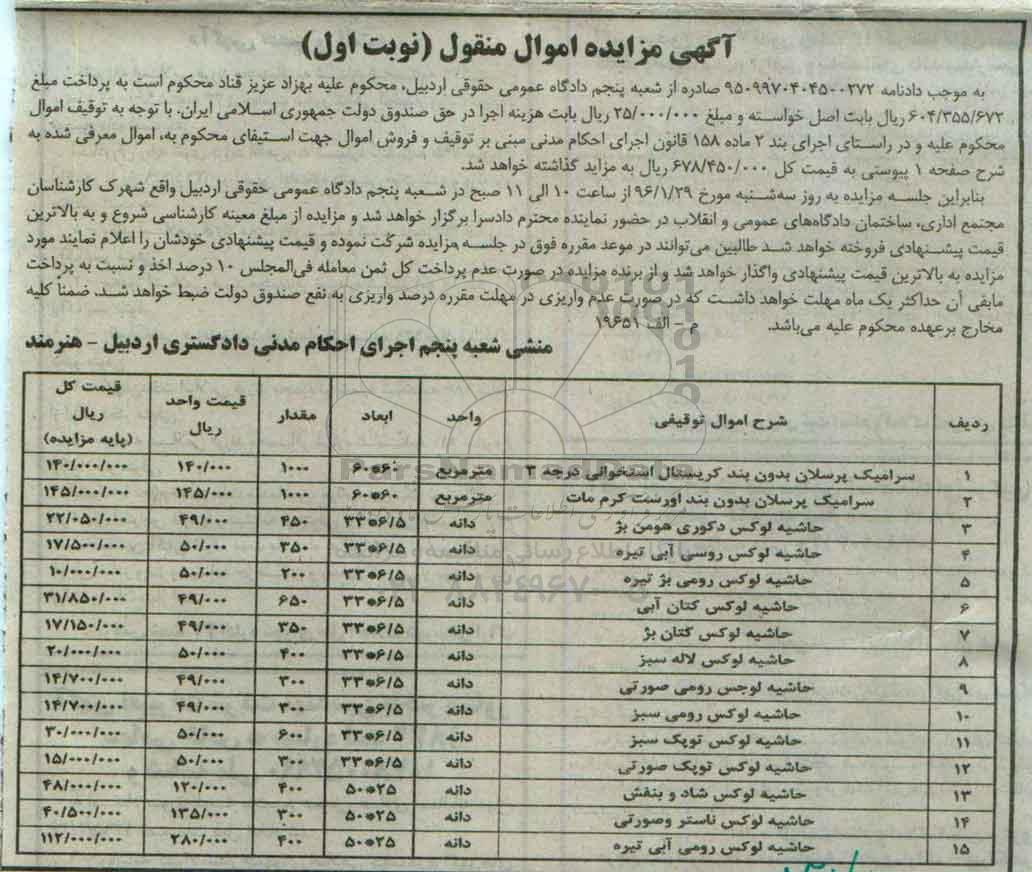 آگهی مزایده اموال منقول (نوبت اول)
به موجب دادنامه ۹۵۰۹۹۷۰۴۰۴۵۰۰۲۷۲ صادره از شعبه پنجم دادگاه عمومی حقوقی اردبیل، محکوم علیه بهزاد عزیز قناد محکوم است به پرداخت مبلغ
۶۰۴/۳۵۵/۶۷۲ ریال بابت اصل خواسته و مبلغ ۲۵/۰۰۰/۰۰۰ ریال بابت هزینه اجرا در حق صندوق دولت جمهوری اسلامی ایران. با توجه به توقیف اموال
محکوم علیه و در راستای اجرای بند ۲ ماده ۱۵۸ قانون اجرای احکام مدنی مبنی بر توقیف و فروش اموال جهت استیفای محکوم به، اموال معرفی شده به
شرح صفحه ۱ پیوستی به قیمت کل ۶۷۸/۴۵۰/۰۰۰ ریال به مزاید گذاشته خواهد شد.
بنابراین جلسه مزایده به روز سه‌شنبه مورخ ۹۶/۱/۲۹ از ساعت ۱۰ الی ۱۱ صبح در شعبه پنجم دادگاه عمومی حقوقی اردبیل واقع شهرک کارشناسان
مجتمع اداری، ساختمان دادگاه‌های عمومی و انقلاب در حضور نماینده محترم دادسرا برگزار خواهد شد و مزایده از مبلغ معینه کارشناسی شروع و به بالاترین
قیمت پیشنهادی فروخته خواهد شد طالبین می‌توانند در موعد مقرره فوق در جلسه مزایده شرکت نموده و قیمت پیشنهادی خودشان را اعلام نمایند مورد
مزایده به بالاترین قیمت پیشنهادی واگذار خواهد شد و از برنده مزایده در صورت عدم پرداخت کل ثمن معامله فی‌المجلس ۱۰ درصد اخذ و نسبت به پرداخت
مابقی آن حداکثر یک ماه مهلت خواهد داشت که در صورت عدم واریزی در مهلت مقرره درصد واریزی به نفع صندوق دولت ضبط خواهد شد. ضمنا کلیه
مخارج برعهده محکوم علیه می‌باشد. م - الف ۱۹۶۵۱
منشی شعبه پنجم اجرای احکام مدنی دادگستری اردبیل - هنرمند
ردیف شرح اموال توقیفی واحد ابعاد مقدار قیمت واحد ریال قیمت کل ریال (پایه مزایده)
۱ سرامیک پرسلان بدون بند کریستال استخوانی درجه ۳ مترمربع ۶۰*۶۰ ۱۰۰۰ ۱۴۰/۰۰۰ ۱۴۰/۰۰۰/۰۰۰
۲ سرامیک پرسلان بدون بند اورست کرم مات مترمربع ۶۰*۶۰ ۱۰۰۰ ۱۴۵/۰۰۰ ۱۴۵/۰۰۰/۰۰۰
۳ حاشیه لوکس دکوری هومن بژ دانه ۳۳*۶/۵ ۴۵۰ ۴۹/۰۰۰ ۲۲/۰۵۰/۰۰۰
۴ حاشیه لوکس روسی آبی تیره دانه ۳۳*۶/۵ ۳۵۰ ۵۰/۰۰۰ ۱۷/۵۰۰/۰۰۰
۵ حاشیه لوکس رومی بژ تیره دانه ۳۳*۶/۵ ۲۰۰ ۵۰/۰۰۰ ۱۰/۰۰۰/۰۰۰
۶ حاشیه لوکس کتان آبی دانه ۳۳*۶/۵ ۶۵۰ ۴۹/۰۰۰ ۳۱/۸۵۰/۰۰۰
۷ حاشیه لوکس کتان بژ دانه ۳۳*۶/۵ ۳۵۰ ۴۹/۰۰۰ ۱۷/۱۵۰/۰۰۰
۸ حاشیه لوکس لاله سبز دانه ۳۳*۶/۵ ۴۰۰ ۵۰/۰۰۰ ۲۰/۰۰۰/۰۰۰
۹ حاشیه لوجس رومی صورتی دانه ۳۳*۶/۵ ۳۰۰ ۴۹/۰۰۰ ۱۴/۷۰۰/۰۰۰
۱۰ حاشیه لوکس رومی سبز دانه ۳۳*۶/۵ ۳۰۰ ۴۹/۰۰۰ ۱۴/۷۰۰/۰۰۰
۱۱ حاشیه لوکس توپک سبز دانه ۳۳*۶/۵ ۶۰۰ ۵۰/۰۰۰ ۳۰/۰۰۰/۰۰۰
۱۲ حاشیه لوکس توپک صورتی دانه ۳۳*۶/۵ ۳۰۰ ۵۰/۰۰۰ ۱۵/۰۰۰/۰۰۰
۱۳ حاشیه لوکس شاد و بنفش دانه ۵۰*۲۵ ۴۰۰ ۱۲۰/۰۰۰ ۴۸/۰۰۰/۰۰۰
۱۴ حاشیه لوکس ناستر وصورتی دانه ۵۰*۲۵ ۳۰۰ ۱۳۵/۰۰۰ ۴۰/۵۰۰/۰۰۰
۱۵ حاشیه لوکس رومی آبی تیره دانه ۵۰*۲۵ ۴۰۰ ۲۸۰/۰۰۰ ۱۱۲/۰۰۰/۰۰۰